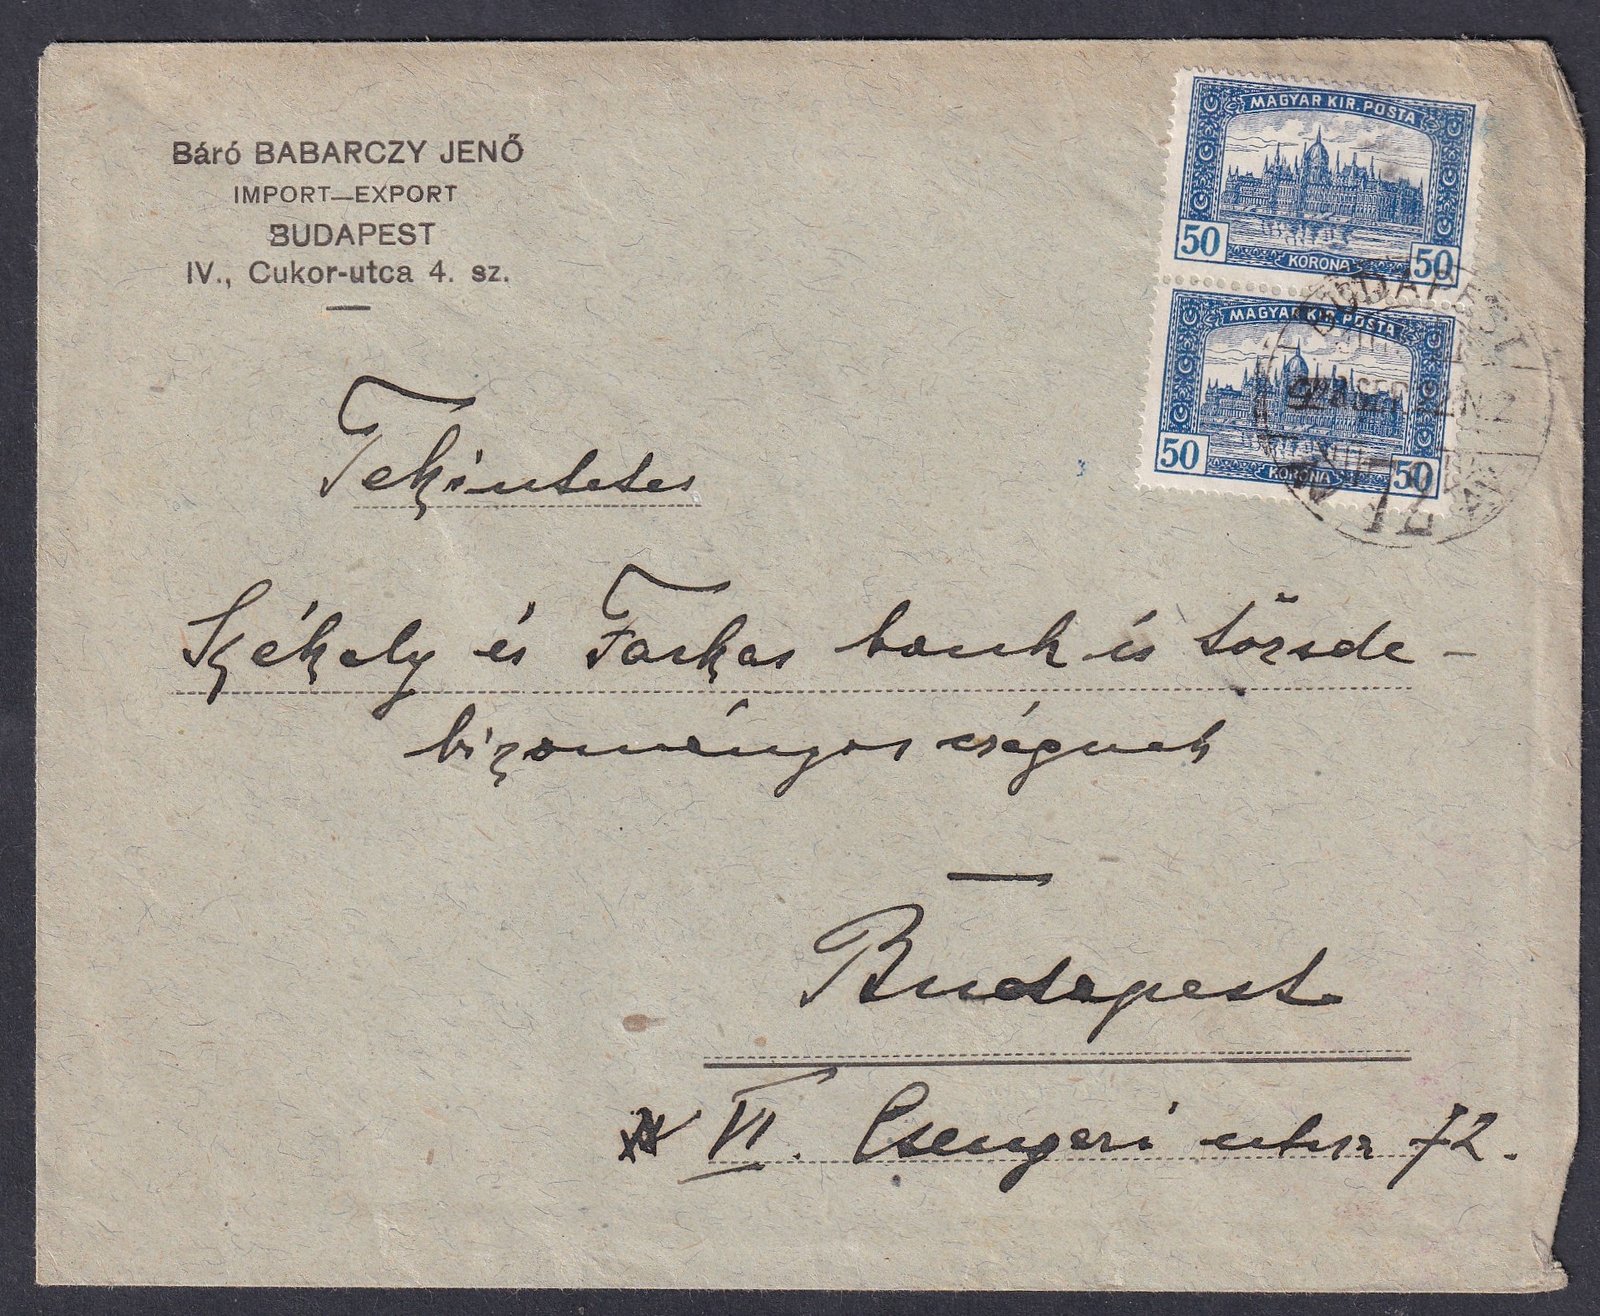 Báró BABARCZY JENŐ
IMPORT—EXPORT
BUDAPEST
IV., Cukor-utca 4. sz.
MAGYAR KIR. POSTA
50 KORONA 50
MAGYAR KIR. POSTA
50 KORONA 50
BUDAPEST
72
Tekintetes
Székely és Farkas bank és tőzsde-
bizományos cégnek
Budapest
VI. Csengeri utca 72.